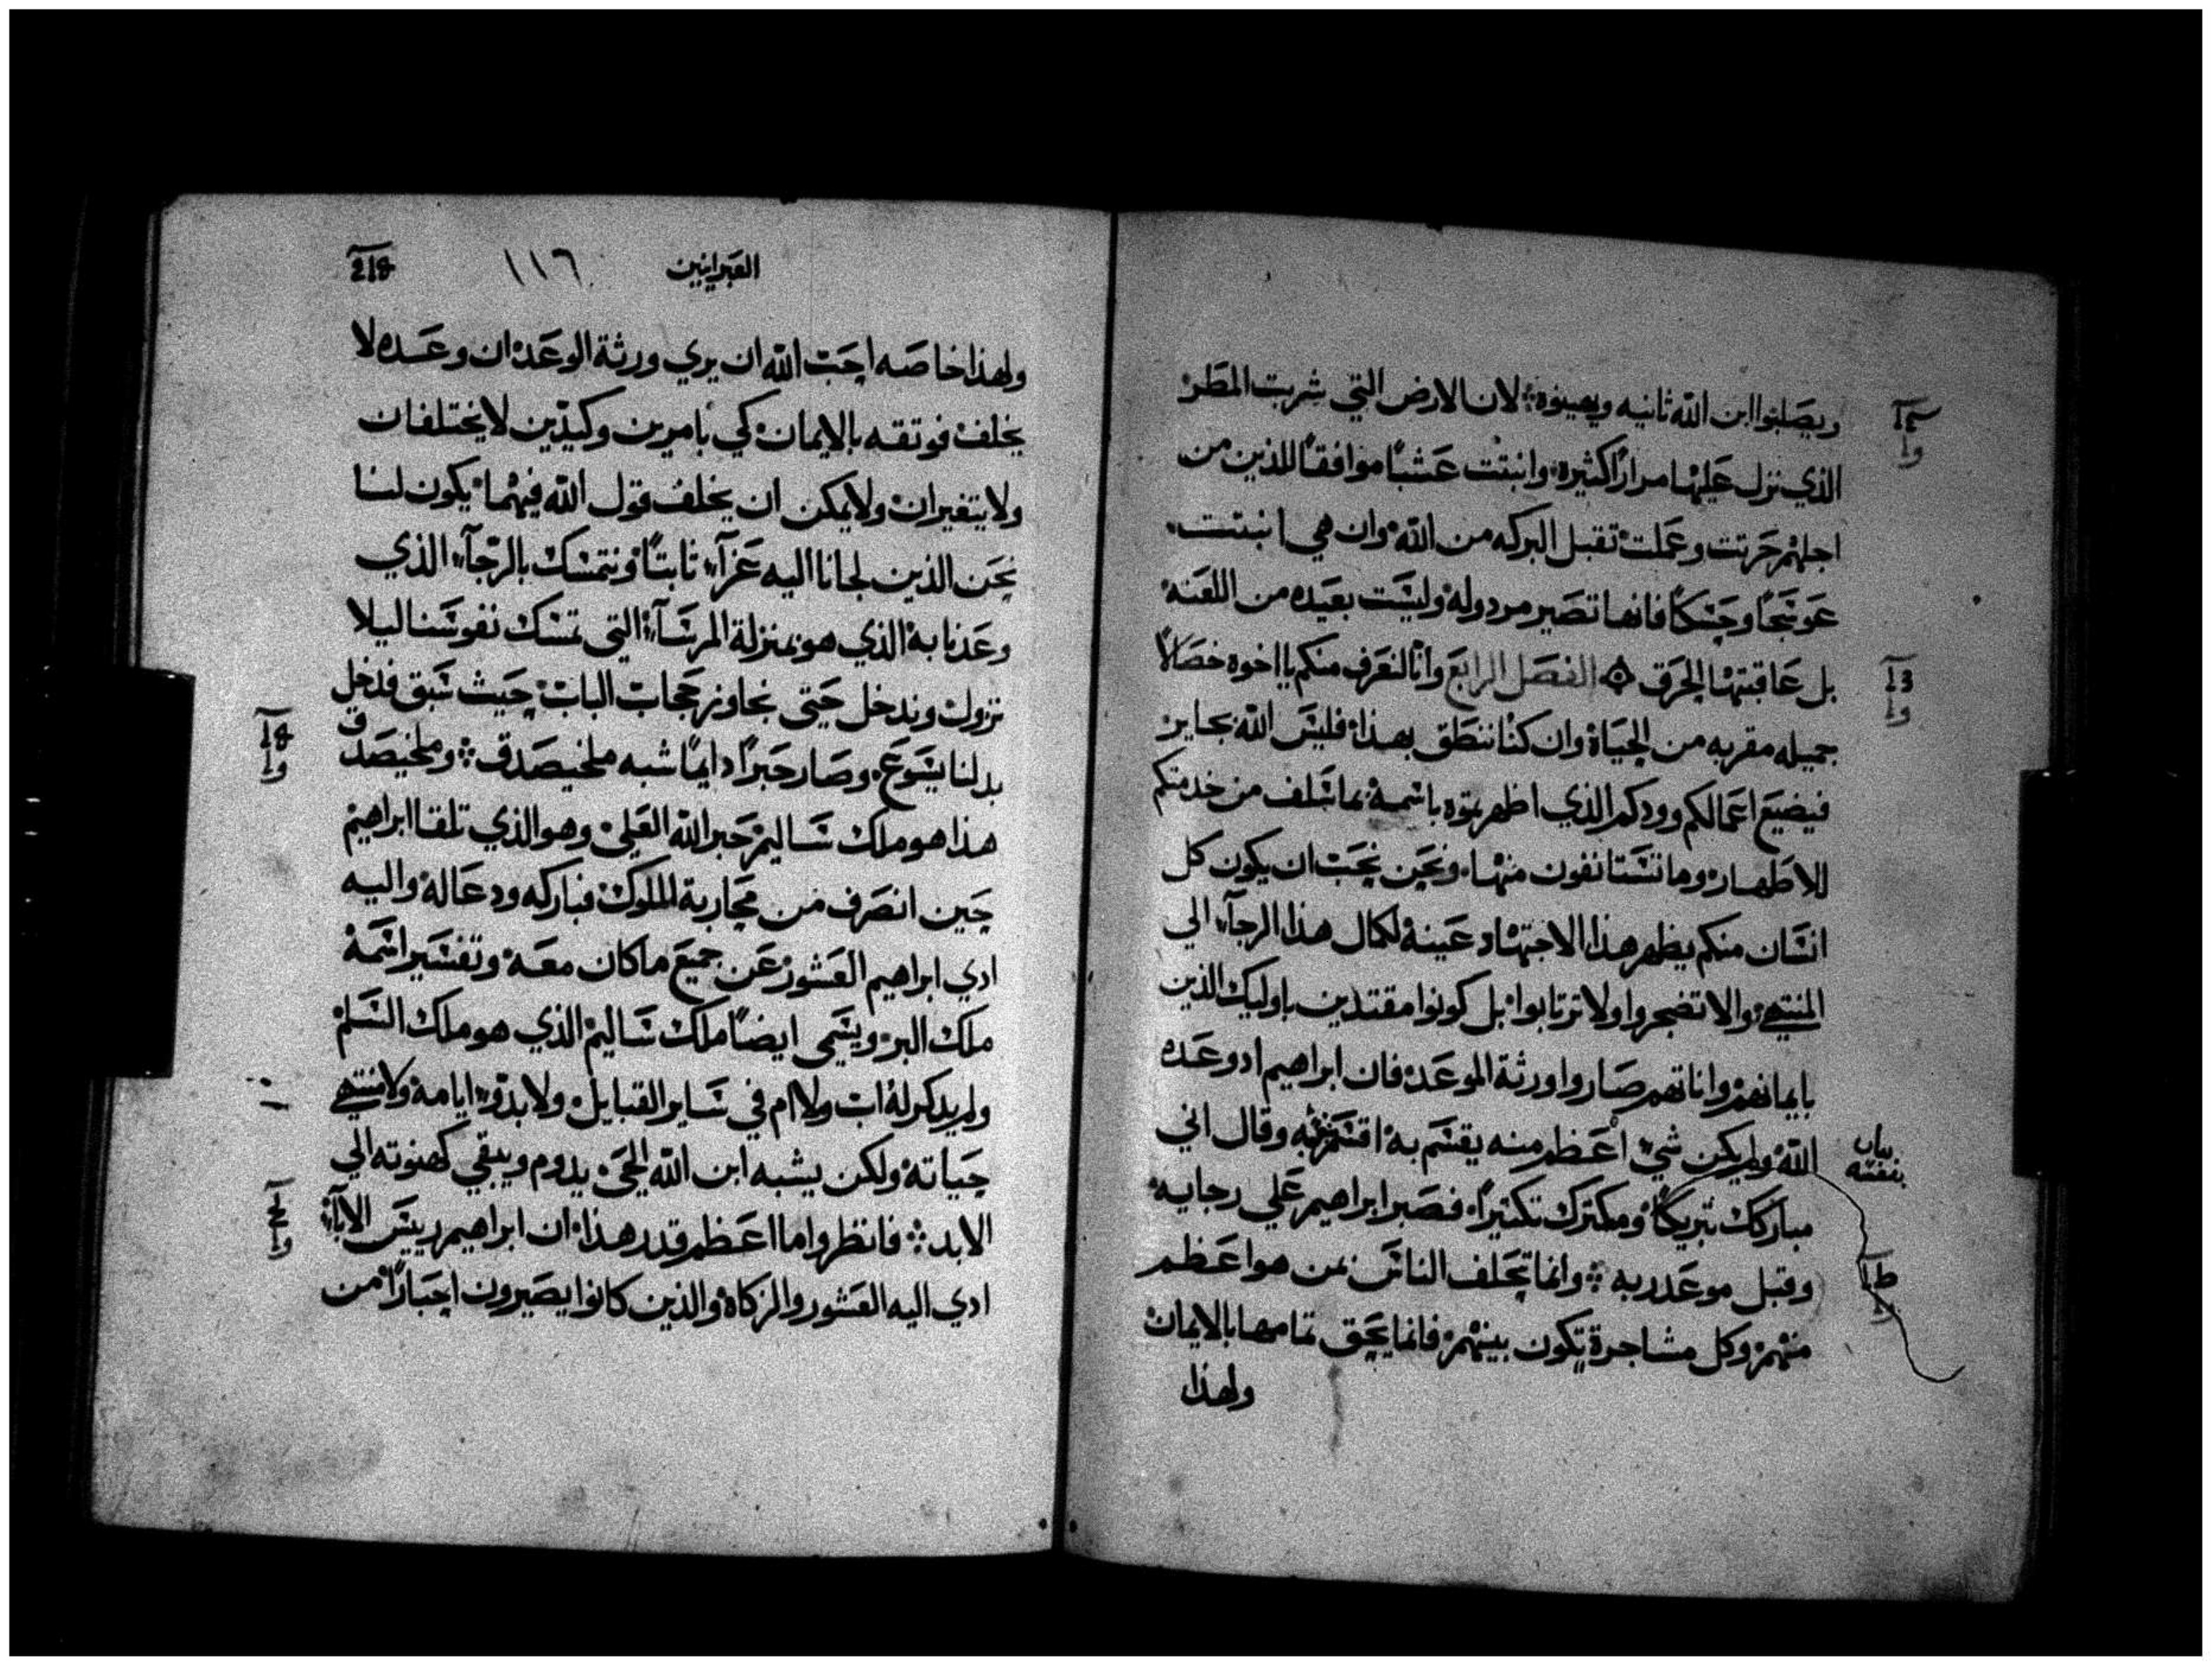 ويصلبوا ابن الله ثانيه ويهينوه لان الارض التي شربت المطر
الذي نزل عليها مرارًا كثيره وانبتت عشبًا موافقًا للذين من
اجلهم حرتت وعملت تقبل البركه من الله وان هي انبتت
عوسجًا وحسكًا فانها تصير مردوله وليست بعيده من اللعنه
بل عاقبتها الحرق الفصل الرابع وانا لنعرف منكم يا اخوه خصالًا
جميله مقربه من الحياة وان كنا ننطق بهذا فليس الله بجاير
فيضيع اعمالكم وودكم الذي اظهرتموه باسمه بما سلف من خدمتكم
للاطهار وما تستانفون منها ونحن نحب ان يكون كل
انسان منكم يظهر هذا الاجتهاد عينه لكمال هذا الرجآء الي
المنتهي والا تضجروا ولا ترتابوا بل كونوا مقتدين باوليك الذين
بايمانهم واناتهم صاروا ورثة الموعد فان ابراهيم اد وعده
الله ولم يكن شيء اعظم منه يقسم به اقسم وقال اني
بيان
بنفسه
مباركك تبريكًا ومكترك تكتيرًا فصبر ابراهيم علي رجايه
وقبل موعد ربه وانما تحلف الناس بمن هو اعظم
منهم وكل مشاجرة تكون بينهم فانما يحق تمامها بالايمان
ولهذا
العبرانيين
١١٦
ولهذا خاصه احب الله ان يري ورثة الوعد ان وعده لا
يخلف فوتقه بالايمان كي بامرين وكيدين لا يختلفان
ولا يتغيران ولا يمكن ان يخلف قول الله فيهما يكون لنا
نحن الذين لجانا اليه عزآء ثابتًا ونتمسك بالرجآء الذي
وعدنا به الذي هو بمنزلة المرسآء التي تمسك نفوسنا ليلا
تزول وندخل حتي نجاوز حجاب الباب حيث سبق فدخل
بدلنا يسوع وصار حبرًا دايمًا شبه ملخيصدق وملخيصدق
هذا هو ملك ساليم حبر الله العلي وهو الذي تلقا ابراهيم
حين انصرف من محاربة الملوك فباركه ودعا له واليه
ادي ابراهيم العشور عن جميع ما كان معه وتفسير اسمه
ملك البر ويسمي ايضًا ملك ساليم الذي هو ملك السلم
ولم يدكر له اب ولا ام في ساير القبايل ولا بدؤ ايامه ولا منتهي
حياته ولكن يشبه ابن الله الحي يدوم ويبقي كهنوته الي
الابد فانظروا ما اعظم قدر هذا ان ابراهيم رييس الابآء
ادي اليه العشور والزكاة والذين كانوا يصيرون احبارًا من